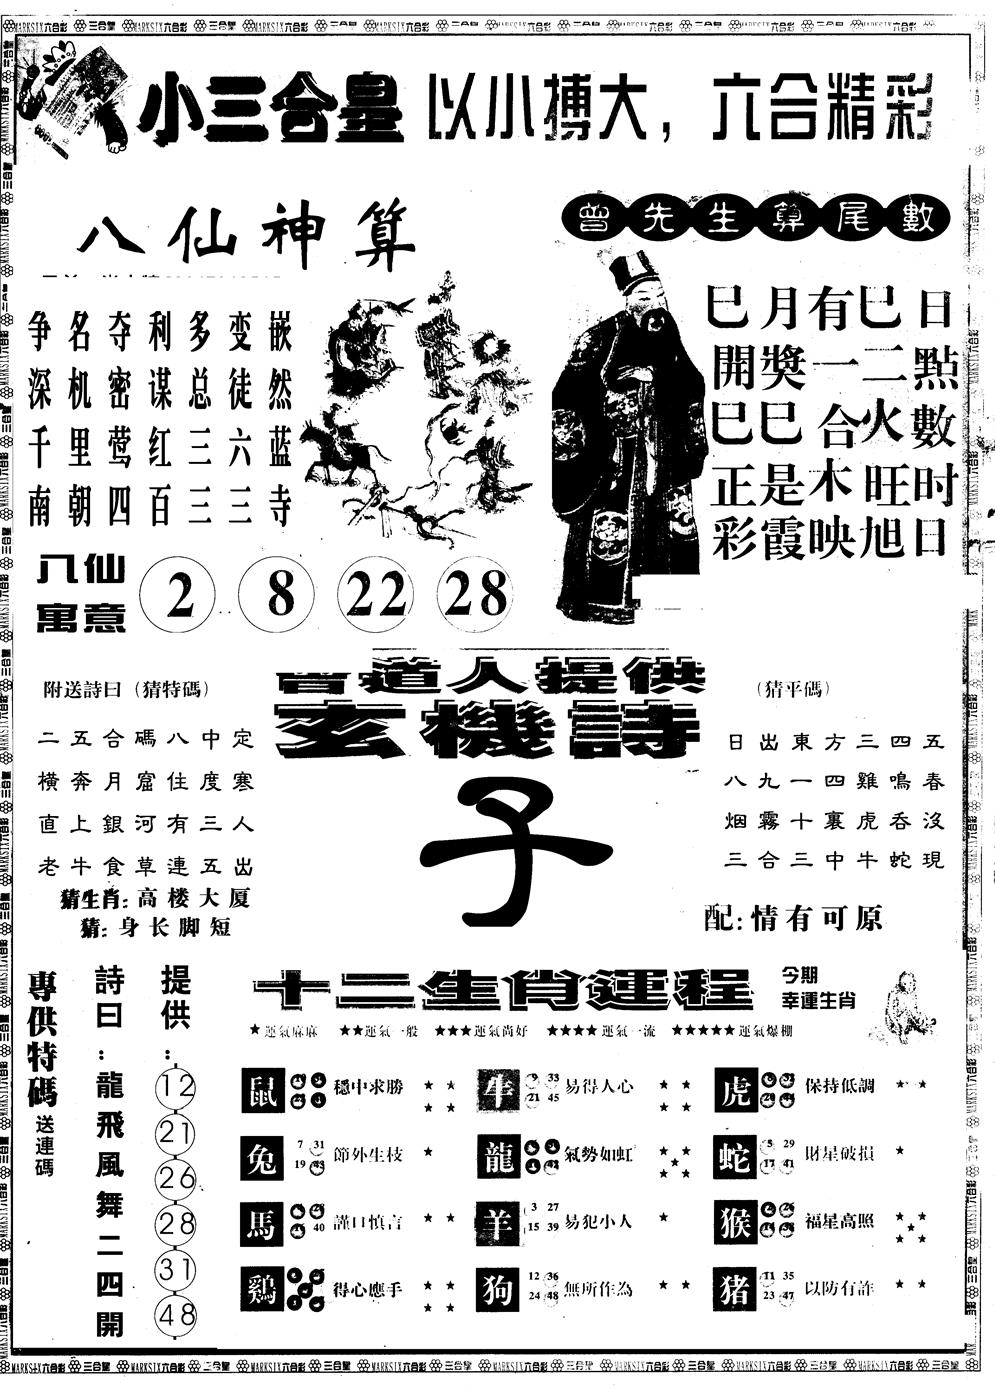 小三合皇 以小搏大，六合精彩
八仙神算
曾先生算尾數
争名夺利多变嵌
深机密谋总徒然
千里莺红三六蓝
南朝四百三三寺
八仙寓意
2 8 22 28
巳月有巳日
開獎一二點
巳巳合火數
正是木旺时
彩霞映旭日
曾道人提供
玄機詩
子
附送詩曰（猜特碼）
二五合碼八中定
橫奔月窟住度寒
直上銀河有三人
老牛食草連五出
猜生肖：高楼大厦
猜：身长脚短
（猜平碼）
日出東方三四五
八九一四雞鳴春
烟霧十裏虎呑沒
三合三中牛蛇現
配：情有可原
專供特碼
送連碼
詩曰：龍飛風舞二四開
提供：
12
21
26
28
31
48
十二生肖運程
今期
幸運生肖
★運氣麻麻 ★★運氣一般 ★★★運氣尚好 ★★★★運氣一流 ★★★★★運氣爆棚
鼠 穩中求勝 ★★★★
牛 33 21 45 易得人心 ★★★★
虎 保持低調 ★★
兔 7 31 19 43 節外生枝 ★
龍 氣勢如虹 ★★★★★
蛇 5 29 17 41 財星破損 ★
馬 40 謹口慎言 ★★
羊 3 27 15 39 易犯小人 ★
猴 福星高照 ★★★★★
鷄 得心應手 ★★★★
狗 12 36 24 48 無所作為 ★★
猪 11 35 23 47 以防有詐 ★★
MARKSIX六合彩 三合皇